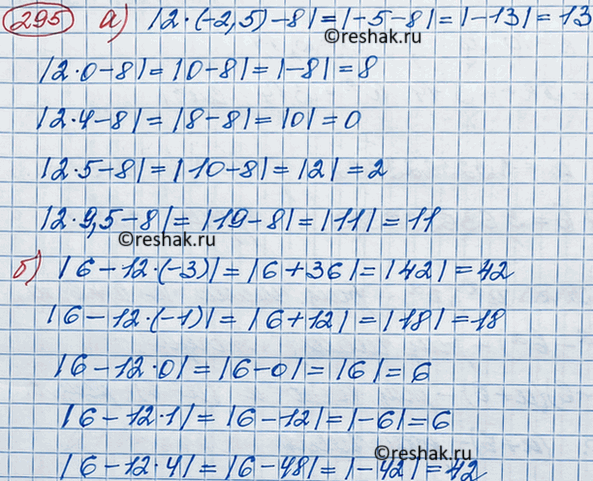 295 а) |2·(-2,5)-8|=|-5-8|=|-13|=13
|2·0-8|=|0-8|=|-8|=8
|2·4-8|=|8-8|=|0|=0
|2·5-8|=|10-8|=|2|=2
|2·9,5-8|=|19-8|=|11|=11
©reshak.ru
б) |6-12·(-3)|=|6+36|=|42|=42
|6-12·(-1)|=|6+12|=|18|=18
|6-12·0|=|6-0|=|6|=6
|6-12·1|=|6-12|=|-6|=6
©reshak.ru
|6-12·4|=|6-48|=|-42|=42